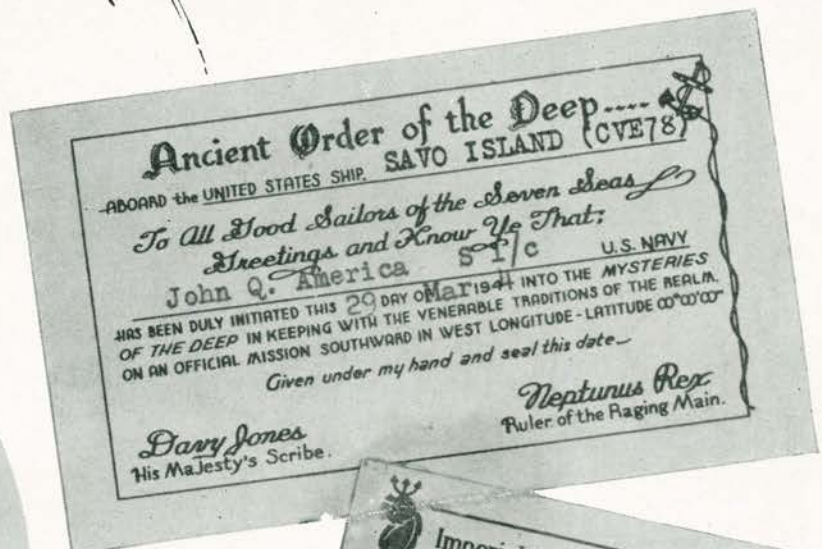 Ancient Order of the Deep....
ABOARD the UNITED STATES SHIP. SAVO ISLAND (CVE78)
To All Good Sailors of the Seven Seas
Greetings and Know Ye That:
John Q. America S 1/c U.S. NAVY
HAS BEEN DULY INITIATED THIS 29 DAY OF Mar 1944 INTO THE MYSTERIES
OF THE DEEP IN KEEPING WITH THE VENERABLE TRADITIONS OF THE REALM.
ON AN OFFICIAL MISSION SOUTHWARD IN WEST LONGITUDE - LATITUDE 00°00'00"
Given under my hand and seal this date
Davy Jones
His Majesty's Scribe.
Neptunus Rex
Ruler of the Raging Main.